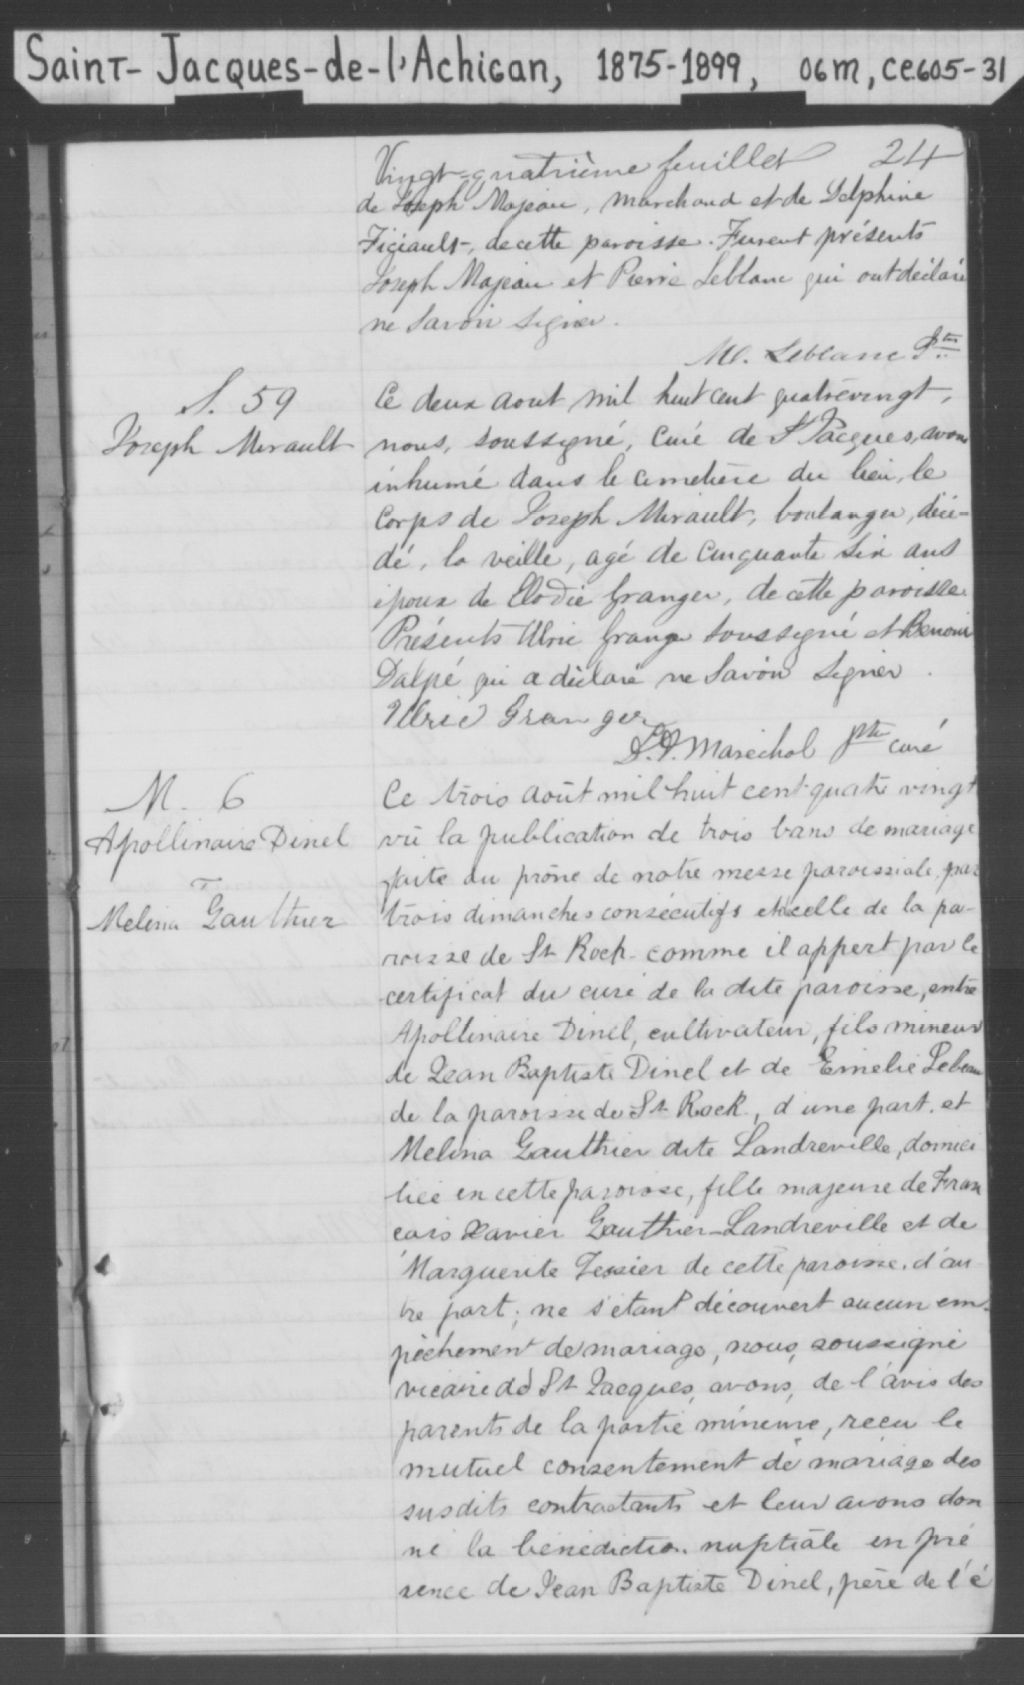 Saint-Jacques-de-l'Achigan, 1875-1899, 06m, ce605-31
Vingt-quatrième feuillet 24
de Joseph Majeau, marchand et de Delphine
de cette paroisse. Furent présents
Joseph Majeau et Pierre Leblanc qui ont déclaré
ne savoir signer.
M. Leblanc Ptre
S. 59
Joseph Mirault
Ce deux aout mil huit cent quatrevingt,
nous, soussigné, curé de St Jacques, avons
inhumé dans le cimetière du lieu, le
corps de Joseph Mirault, boulanger, décé-
dé, la veille, agé de cinquante six ans
époux de Elodie Granger, de cette paroisse.
Présents Ulric Granger soussigné et
Dalpé qui a déclaré ne savoir signer.
Ulric Granger
Maréchal ptre curé
M. 6
Apollinaire Dinel
&
Melina Gauthier
Ce trois août mil huit cent quatre vingt
vû la publication de trois bans de mariage
faite au prône de notre messe paroissiale, par
trois dimanches consécutifs et celle de la pa-
roisse de St Roch comme il appert par le
certificat du curé de la dite paroisse, entre
Apollinaire Dinel, cultivateur, fils mineur
de Jean Baptiste Dinel et de Emelie Lebeau
de la paroisse de St Roch, d'une part, et
Melina Gauthier dite Landreville, domici
liée en cette paroisse, fille majeure de Fran
çois Xavier Gauthier-Landreville et de
Marguerite Tessier de cette paroisse, d'au
tre part; ne s'étant découvert aucun em-
pêchement de mariage, nous, soussigné
vicaire de St Jacques, avons, de l'avis des
parents de la partie mineure, reçu le
mutuel consentement de mariage des
susdits contractants et leur avons don
né la bénédiction nuptiale en pré
sence de Jean Baptiste Dinel, père de l'é